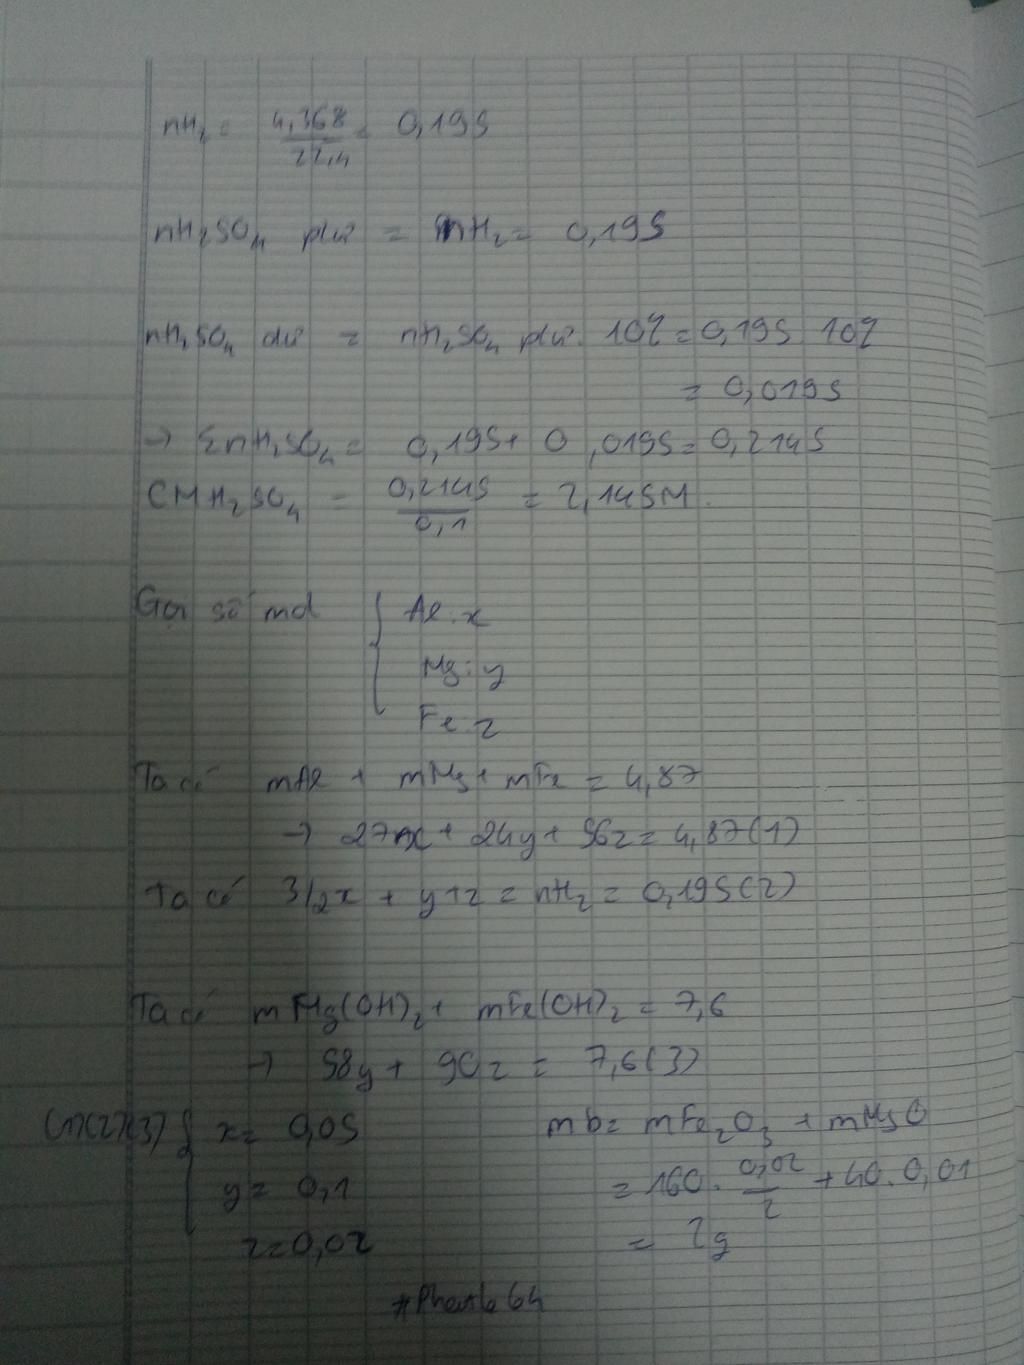 nH₂ = 4,368/22,4 = 0,195
nH₂SO₄ pứ = nH₂ = 0,195
nH₂SO₄ dư = nH₂SO₄ pứ. 10% = 0,195 10%
= 0,0195
→ ΣnH₂SO₄ = 0,195 + 0,0195 = 0,2145
CM H₂SO₄ = 0,2145/0,1 = 2,145M.
Gọi số mol { Al: x
Mg: y
Fe: z
Ta có mAl + mMg + mFe = 4,87
→ 27x + 24y + 56z = 4,87 (1)
Ta có 3/2x + y + z = nH₂ = 0,195 (2)
Ta có mMg(OH)₂ + mFe(OH)₂ = 7,6
→ 58y + 90z = 7,6 (3)
(1)(2)(3) { x = 0,05
y = 0,1
z = 0,02
mb = mFe₂O₃ + mMgO
= 160. 0,02/2 + 40. 0,01
= 2g